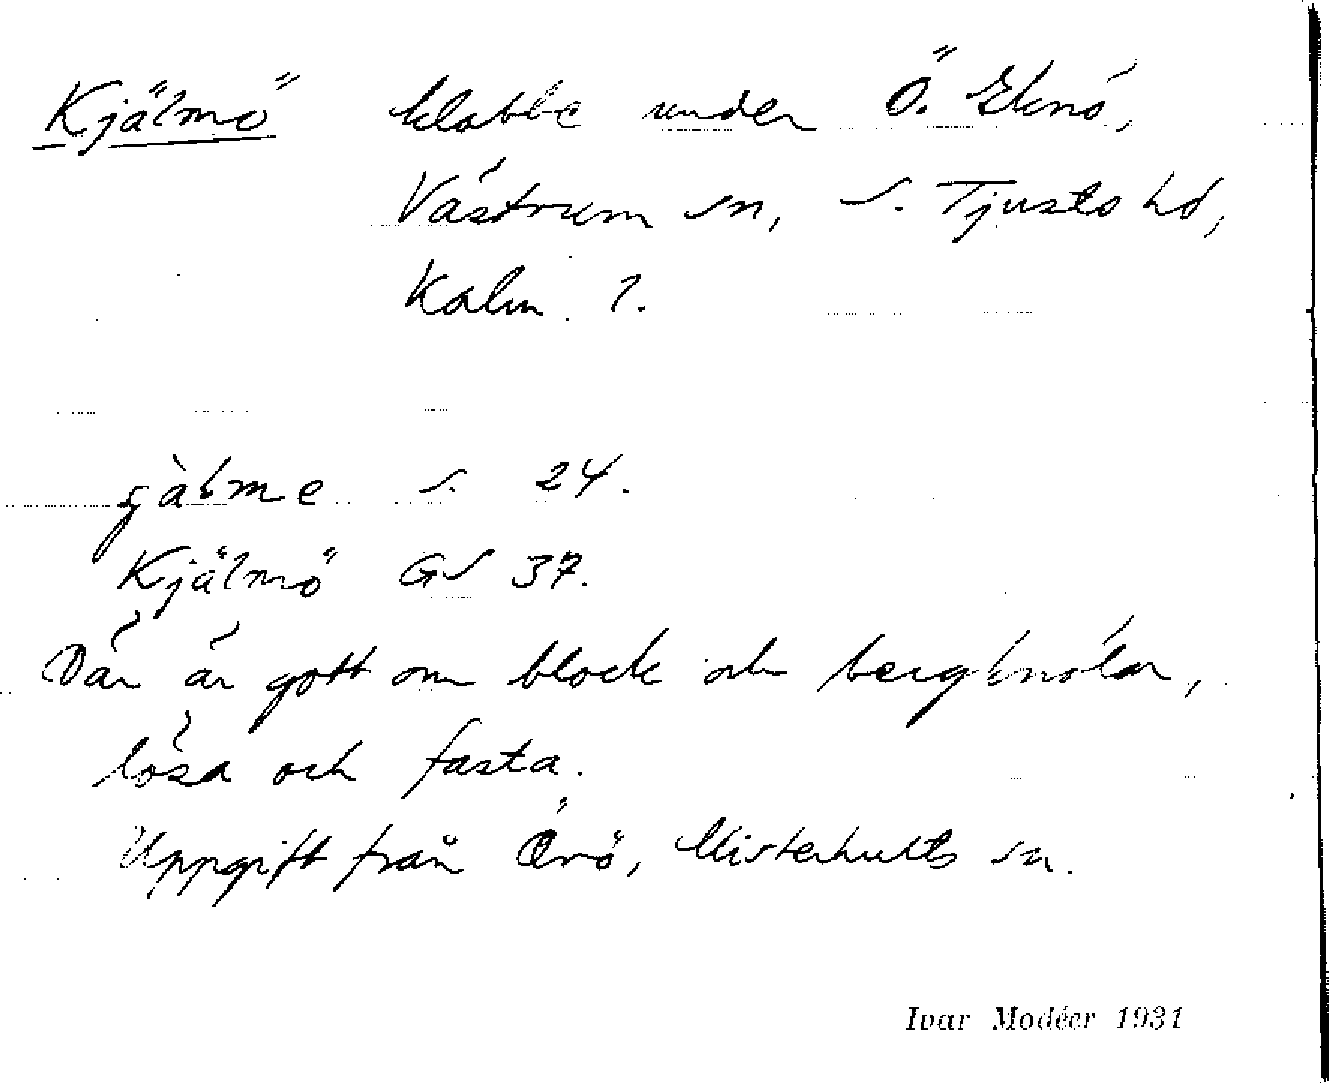 Kjälmö klabbe under Ö. Eknö,
Västrum sn, S. Tjusts hd,
Kalm. l.
s. 24.
Kjälmö GS 37.
Där är gott om block och bergknölar,
lösa och fasta.
Uppgift från Örö, Misterhults sn.
Ivar Modéer 1931